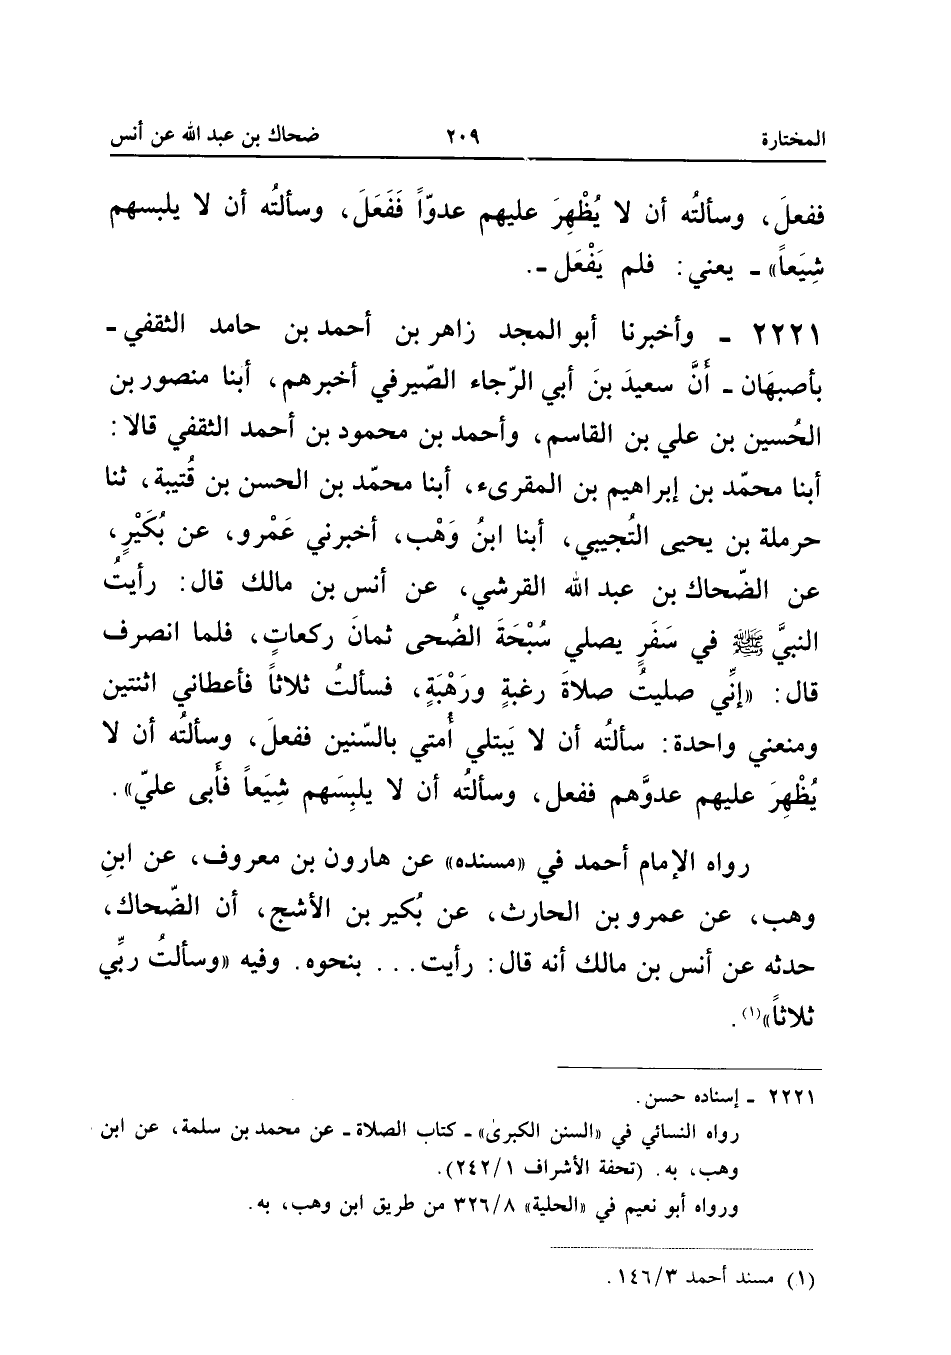 المختارة ٢٠٩ ضحاك بن عبد الله عن أنس
ففعلَ، وسألتُه أن لا يُظْهِرَ عليهم عدوّاً فَفَعَلَ، وسألتُه أن لا يلبسهم
شِيَعاً» - يعني: فلم يَفْعَل -.
٢٢٢١ - وأخبرنا أبو المجد زاهر بن أحمد بن حامد الثقفي -
بأصبهَان - أَنَّ سعيدَ بنَ أبي الرّجاء الصّيرفي أخبرهم، أبنا منصور بن
الحُسين بن علي بن القاسم، وأحمد بن محمود بن أحمد الثقفي قالا:
أبنا محمّد بن إبراهيم بن المقرىء، أبنا محمّد بن الحسن بن قُتيبة، ثنا
حرملة بن يحيى التُجيبي، أبنا ابنُ وَهْب، أخبرني عَمْرو، عن بُكَيْرٍ،
عن الضّحاك بن عبد الله القرشي، عن أنس بن مالك قال: رأيتُ
النبيَّ ﷺ في سَفَرٍ يصلي سُبْحَةَ الضُحى ثمانَ ركعاتٍ، فلما انصرف
قال: «إنِّي صليتُ صلاةَ رغبةٍ ورَهْبَةٍ، فسألتُ ثلاثاً فأعطاني اثنتين
ومنعني واحدة: سألتُه أن لا يَبتلي أُمتي بالسّنين ففعلَ، وسألتُه أن لا
يُظْهِرَ عليهم عدوَّهم ففعل، وسألتُه أن لا يلبِسَهم شِيَعاً فأَبى عليّ».
رواه الإمام أحمد في «مسنده» عن هارون بن معروف، عن ابنِ
وهب، عن عمرو بن الحارث، عن بُكير بن الأشج، أن الضّحاك،
حدثه عن أنس بن مالك أنه قال: رأيت... بنحوه. وفيه «وسألتُ ربِّي
ثلاثاً»(١).
٢٢٢١ - إسناده حسن.
رواه النسائي في «السنن الكبرىٰ» - كتاب الصلاة - عن محمد بن سلمة، عن ابن
وهب، به. (تحفة الأشراف ٢٤٢/١).
ورواه أبو نعيم في «الحلية» ٣٢٦/٨ من طريق ابن وهب، به.
(١) مسند أحمد ١٤٦/٣.